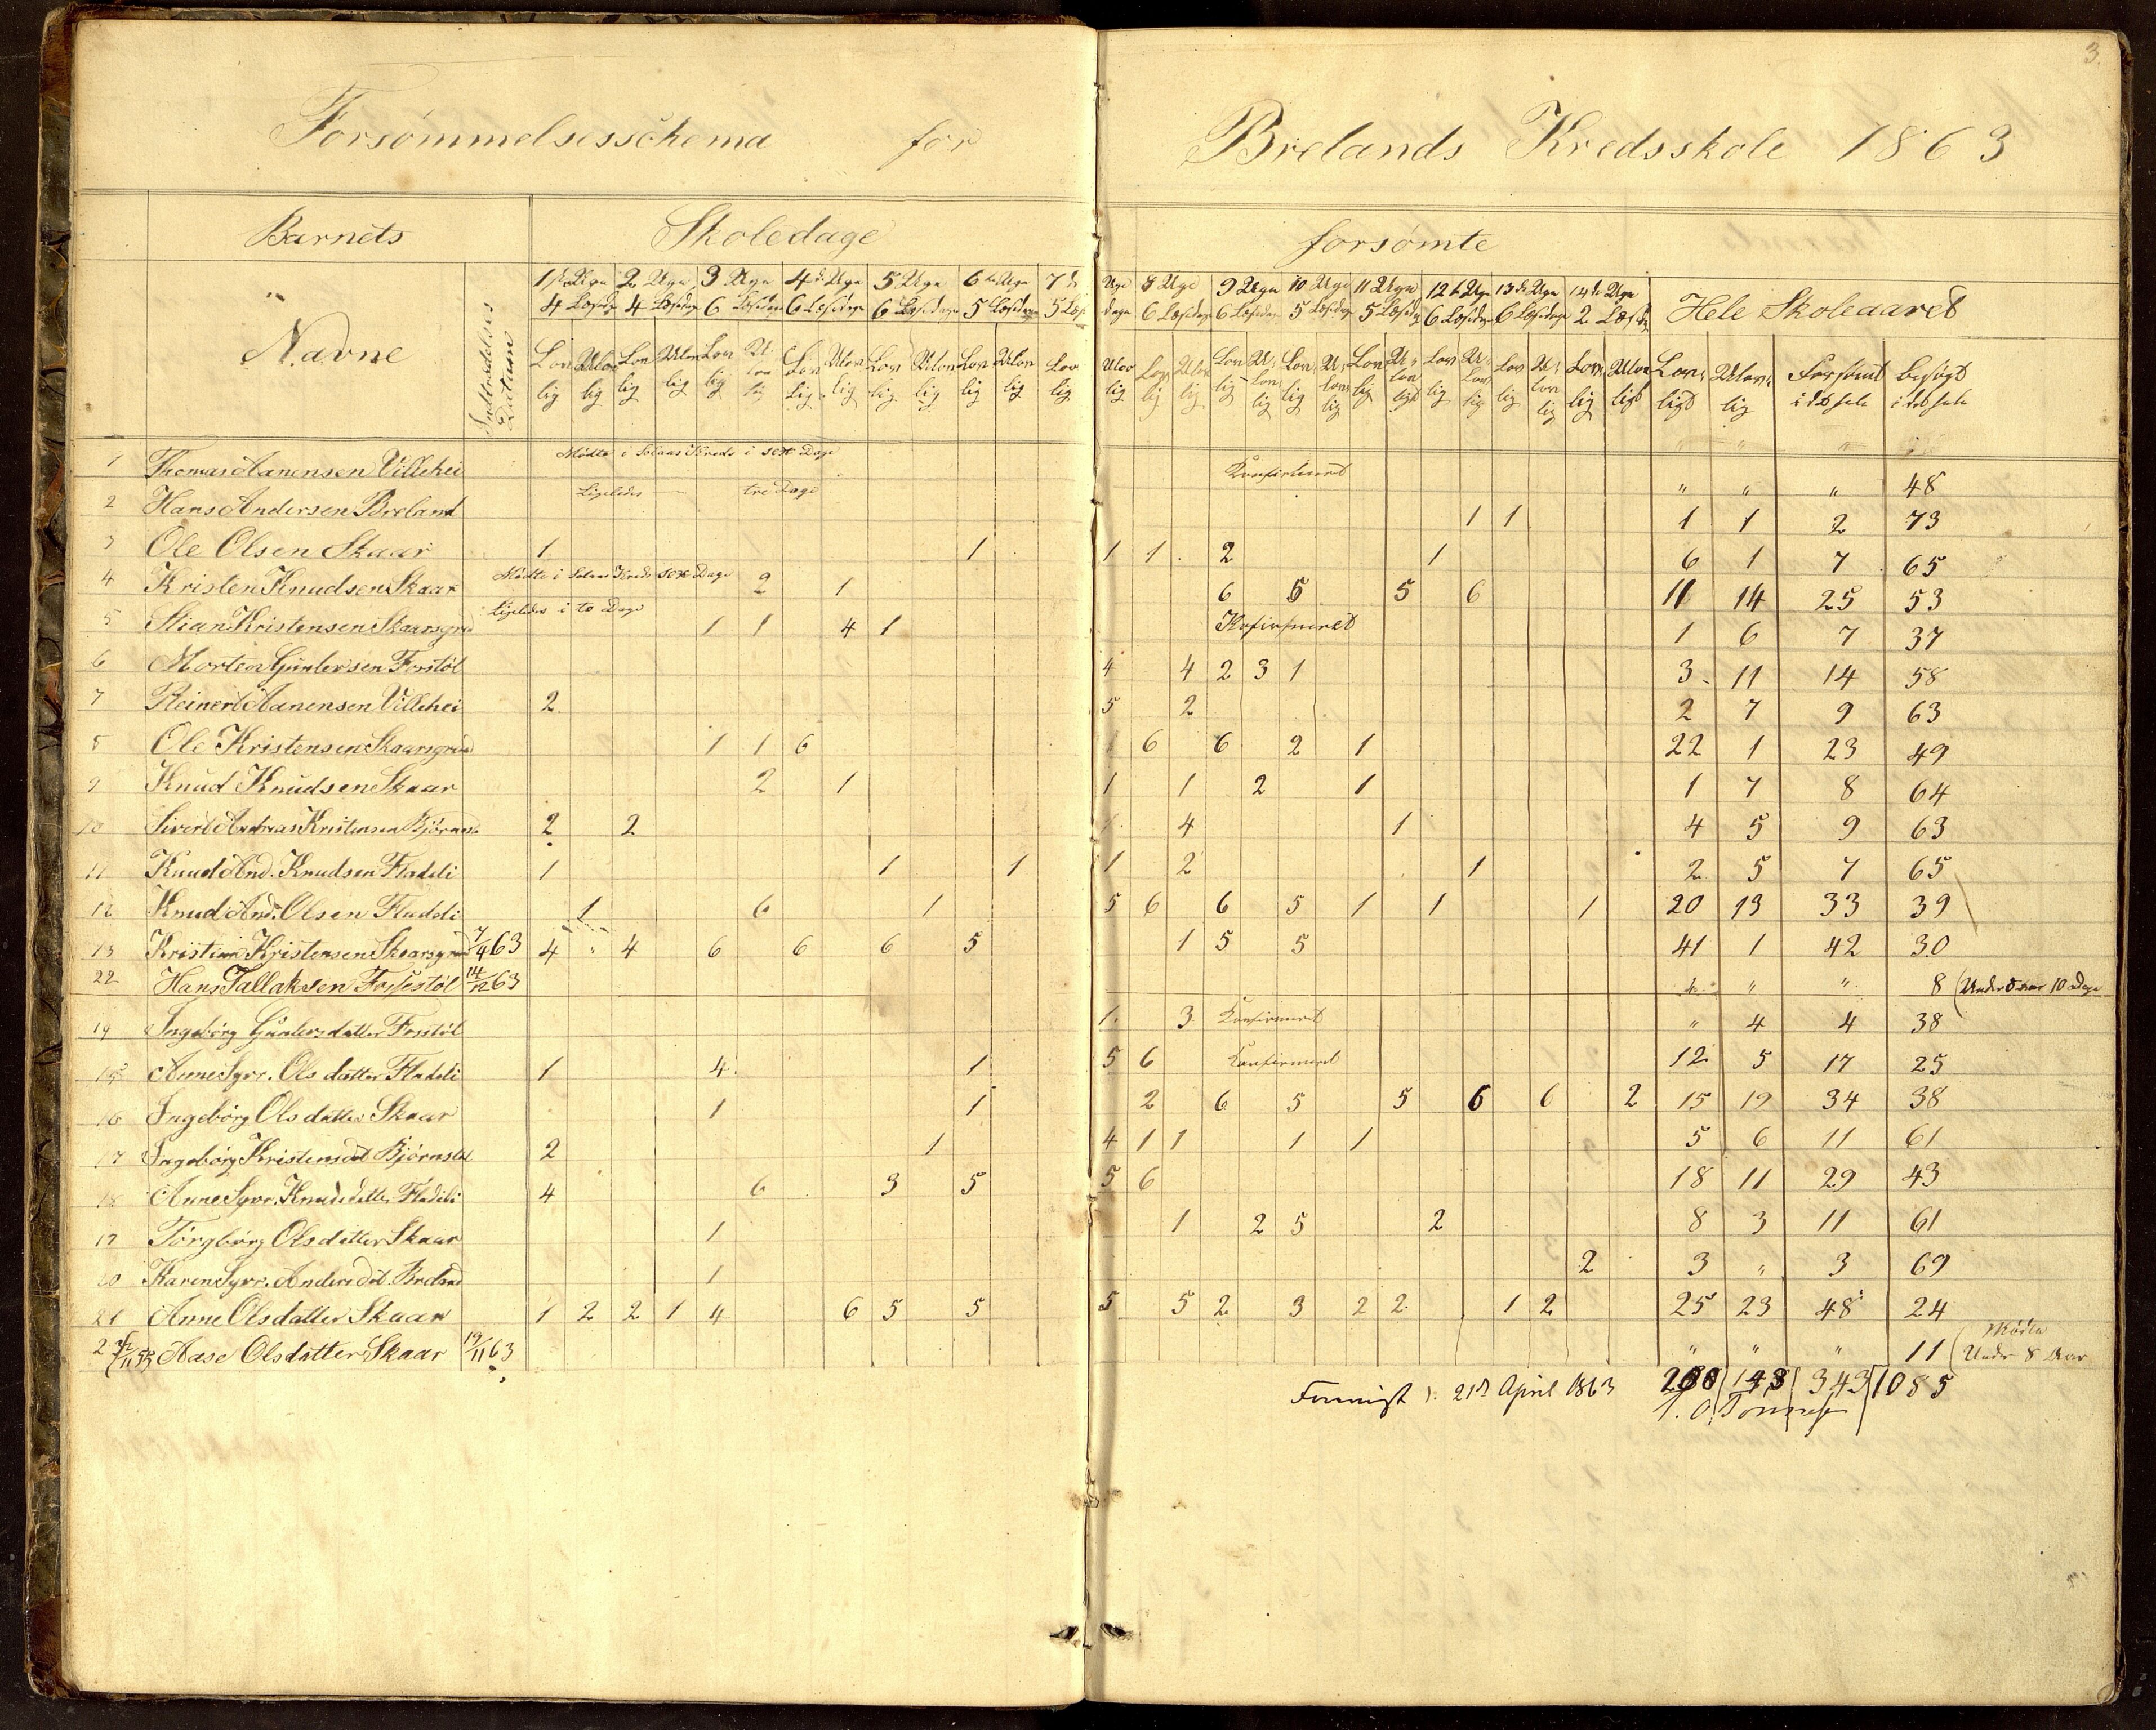 3.
Forsømmelsesschema for Brelands Kredsskole 1863
Barnets Skoledage forsømte
Navne Indtrædelses Datum
1ste Uge 2 Uge 3 Uge 4de Uge 5 Uge 6te Uge 7de Uge 8 Uge 9 Uge 10 Uge 11 Uge 12te Uge 13de Uge 14de Uge Hele Skoleaaret
4 Læsedage 4 Læsedage 6 Læsedage 6 Læsedage 6 Læsedage 5 Læsedage 5 Læsedage 6 Læsedage 6 Læsedage 5 Læsedage 5 Læsedage 6 Læsedage 6 Læsedage 2 Læsedage
Lovlig Ulovlig Lovlig Ulovlig Lovlig Ulovlig Lovlig Ulovlig Lovlig Ulovlig Lovlig Ulovlig Lovlig Ulovlig Lovlig Ulovlig Lovlig Ulovlig Lovlig Ulovlig Lovlig Ulovligt Lovlig Ulovlig Lovlig Ulovlig Lovlig Ulovligt Lovligt Ulovlig Forsømt i det hele besøgt i det hele
1 Thomas Aanensen Villehei Mødte i Solaas Kreds i sex Dage Konfirmeret " " " 48
2 Hans Andersen Breland Ligeledes tre Dage 1 1 1 1 2 73
3 Ole Olsen Skaar 1 1 1 1 2 1 6 1 7 65
4 Kristen Knudsen Skaar Mødte i Solaas Kreds sex Dage 2 1 6 5 5 6 11 14 25 53
5 Stian Kristensen Skaarsgrd Ligeledes i to Dage 1 1 4 1 Konfirmeret 1 6 7 37
6 Morten Gunlersen Frøstøl 4 4 2 3 1 3 11 14 58
7 Reinert Aanensen Villehei 2 5 2 2 7 9 63
8 Ole Kristensen Skaarsgrd 1 1 6 6 6 2 1 22 1 23 49
9 Knud Knudsen Skaar 2 1 1 1 2 1 1 7 8 64
10 Sivert Andreas Kristensen Bjørnst. 2 2 1 4 1 4 5 9 63
11 Knud And. Knudsen Fladeli 1 1 1 1 2 1 2 5 7 65
12 Knud And. Olsen Fladeli 1 6 1 5 6 6 5 1 1 1 20 13 33 39
13 Kristian Kristensen Skaarsgrd 7/9 63 4 " 4 6 6 6 5 1 5 5 41 1 42 30
22 Hans Tallaksen Forsestøl 14/12 63 " " " 8 (Under 8 aar 10 Dage
14 Ingebórg Gunlersdatter Frøstøl 1 3 Konfirmeret " 4 4 38
15 Anne Syvr. Olsdatter Fladeli 1 4 1 5 6 Konfirmeret 12 5 17 25
16 Ingebórg Olsdatter Skaar 1 1 2 6 5 5 6 6 2 15 19 34 38
17 Ingebórg Kristensdat Bjørnstøl 2 1 4 1 1 1 1 5 6 11 61
18 Anne Syvr. Knudsdatter Fladeli 4 6 3 5 5 6 18 11 29 43
19 Tórgbórg Olsdatter Skaar 1 1 2 5 2 8 3 11 61
20 Karen Syvr. Andersdat. Breland 1 2 3 " 3 69
21 Anne Olsdatter Skaar 1 2 2 1 4 6 5 5 5 5 2 3 2 2 1 2 25 23 48 24
2 Aase Olsdatter Skaar 19/11 63 " " " 11 (Mødte Under 8 Aar
200 143 343 1085
d. 21de April 1863